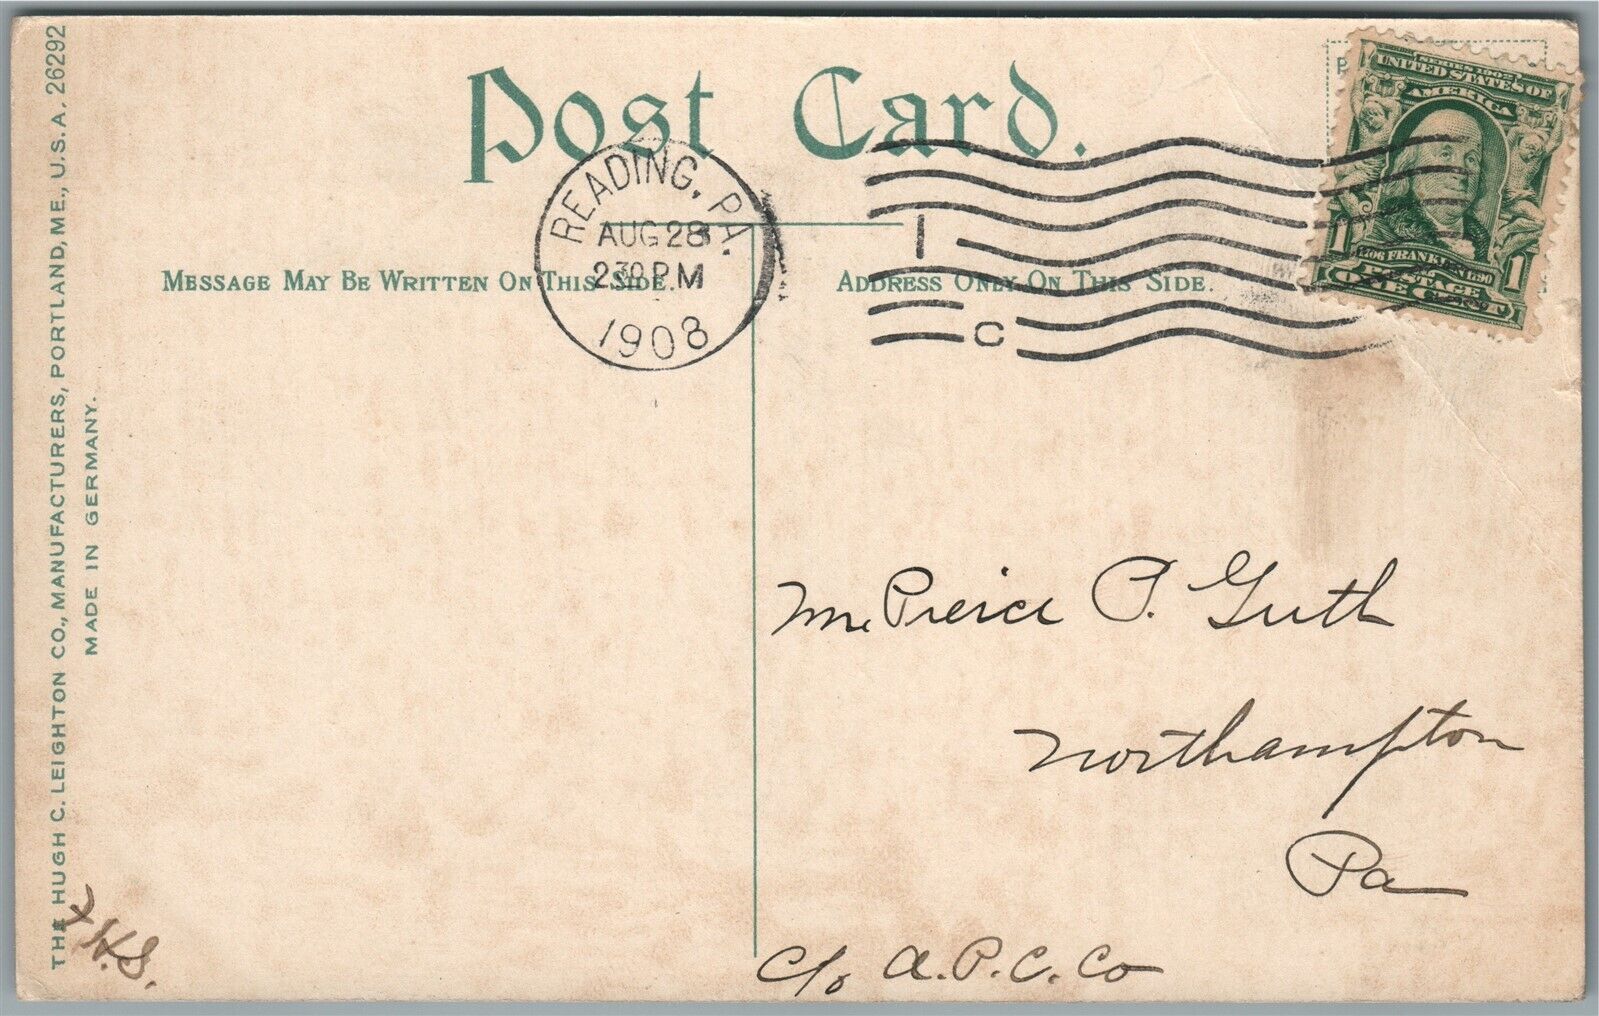 THE HUGH C. LEIGHTON CO., MANUFACTURERS, PORTLAND, ME., U.S.A. 26292
MADE IN GERMANY.
Post Card.
READING, PA.
AUG 28
2 30 PM
1908
1
C
SERIES 1902
UNITED STATES OF
AMERICA
1706 FRANKLIN 1790
POSTAGE
1 ONE CENT 1
MESSAGE MAY BE WRITTEN ON THIS SIDE.
ADDRESS ONLY ON THIS SIDE.
Mr. Pierce P. Guth
Northampton
Pa
c/o A.P.C. Co
H.S.